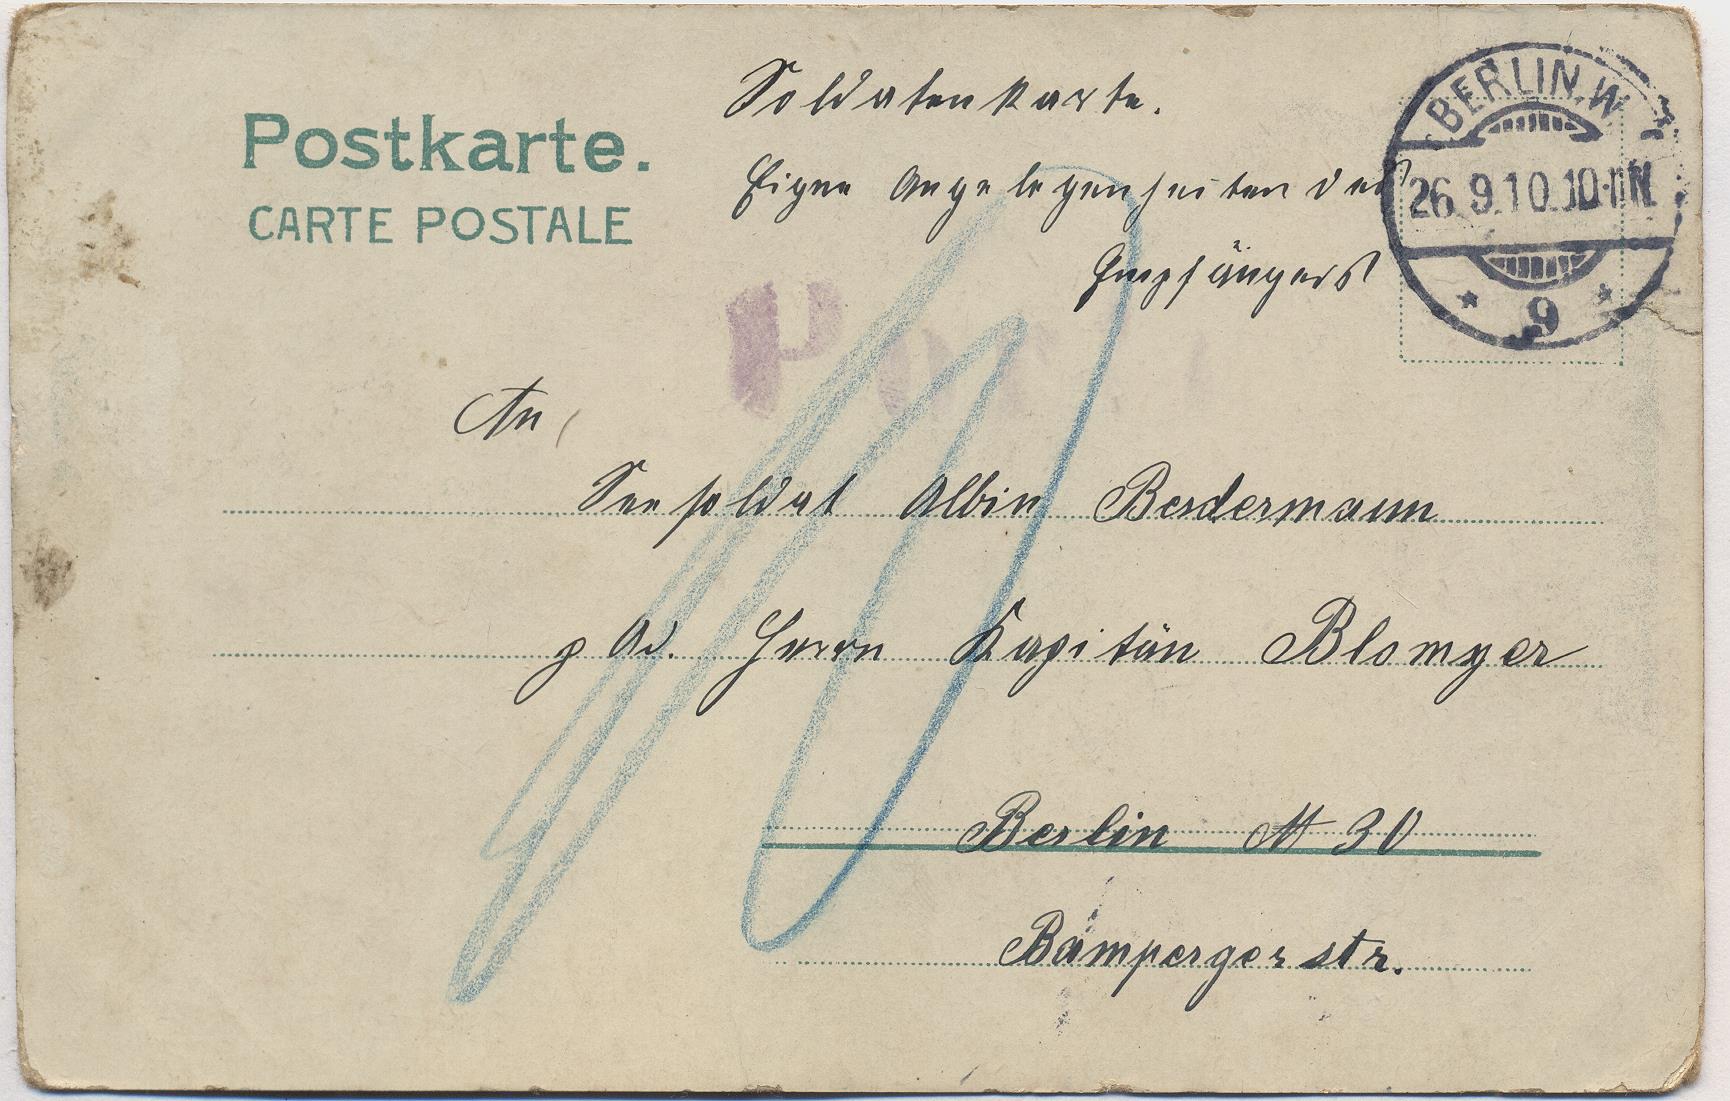 Postkarte.
CARTE POSTALE
Soldatenkarte.
Eigne Angelegenheiten des
Empfängers
BERLIN, W
26.9.10.10-11N.
* 9 *
Port
10
An
Seesoldat Albin Berdermann
p Ad. Herrn Kapitän Blomyer
Berlin W 30
Bampergerstr.